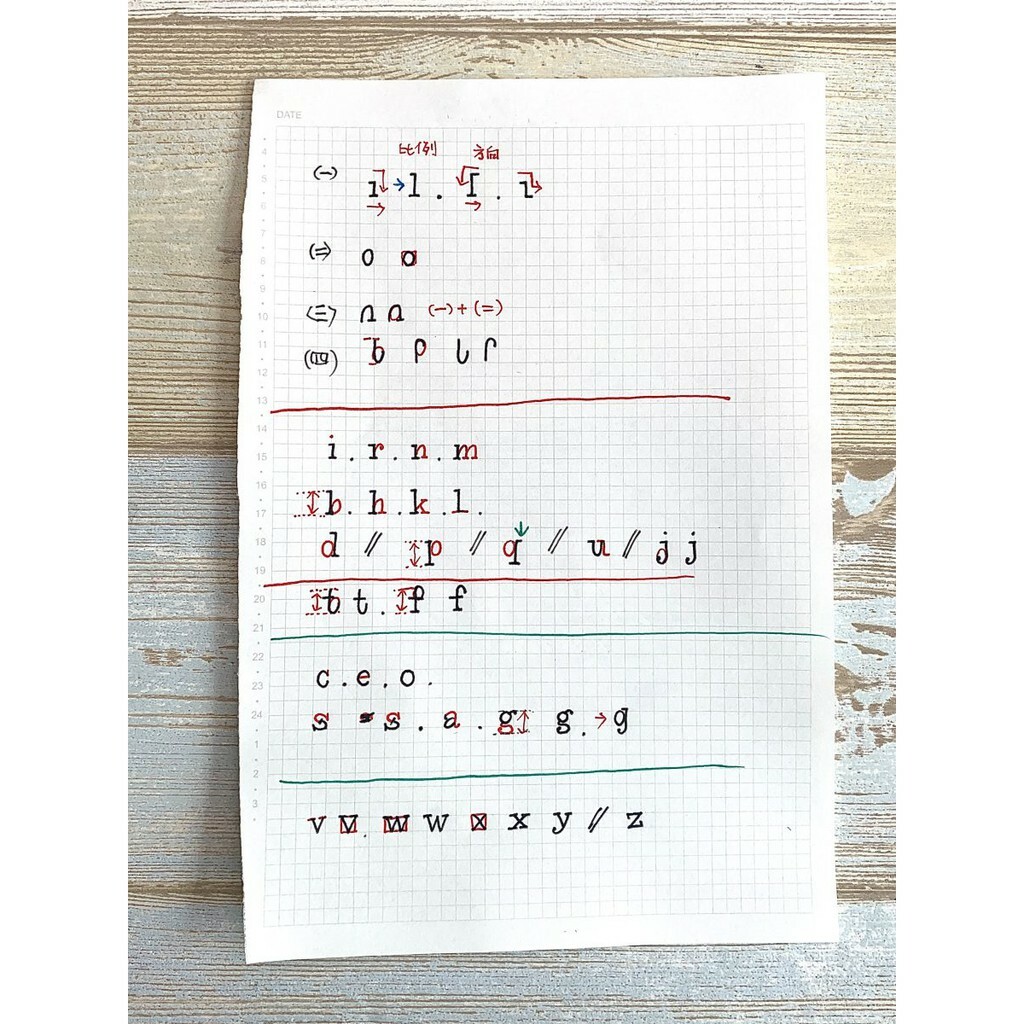 DATE
比例 方向
(一) ı → l . I . ı
(二) o o
(三) n a (一)+(二)
(四) b p l r
i . r . n . m
b . h . k . l .
d // p // q // u // j j
t t . f f
c . e . o .
s s . a . g g . → g
v v . w w x x y // z
4
5
6
7
8
9
10
11
12
13
14
15
16
17
18
19
20
21
22
23
24
1
2
3